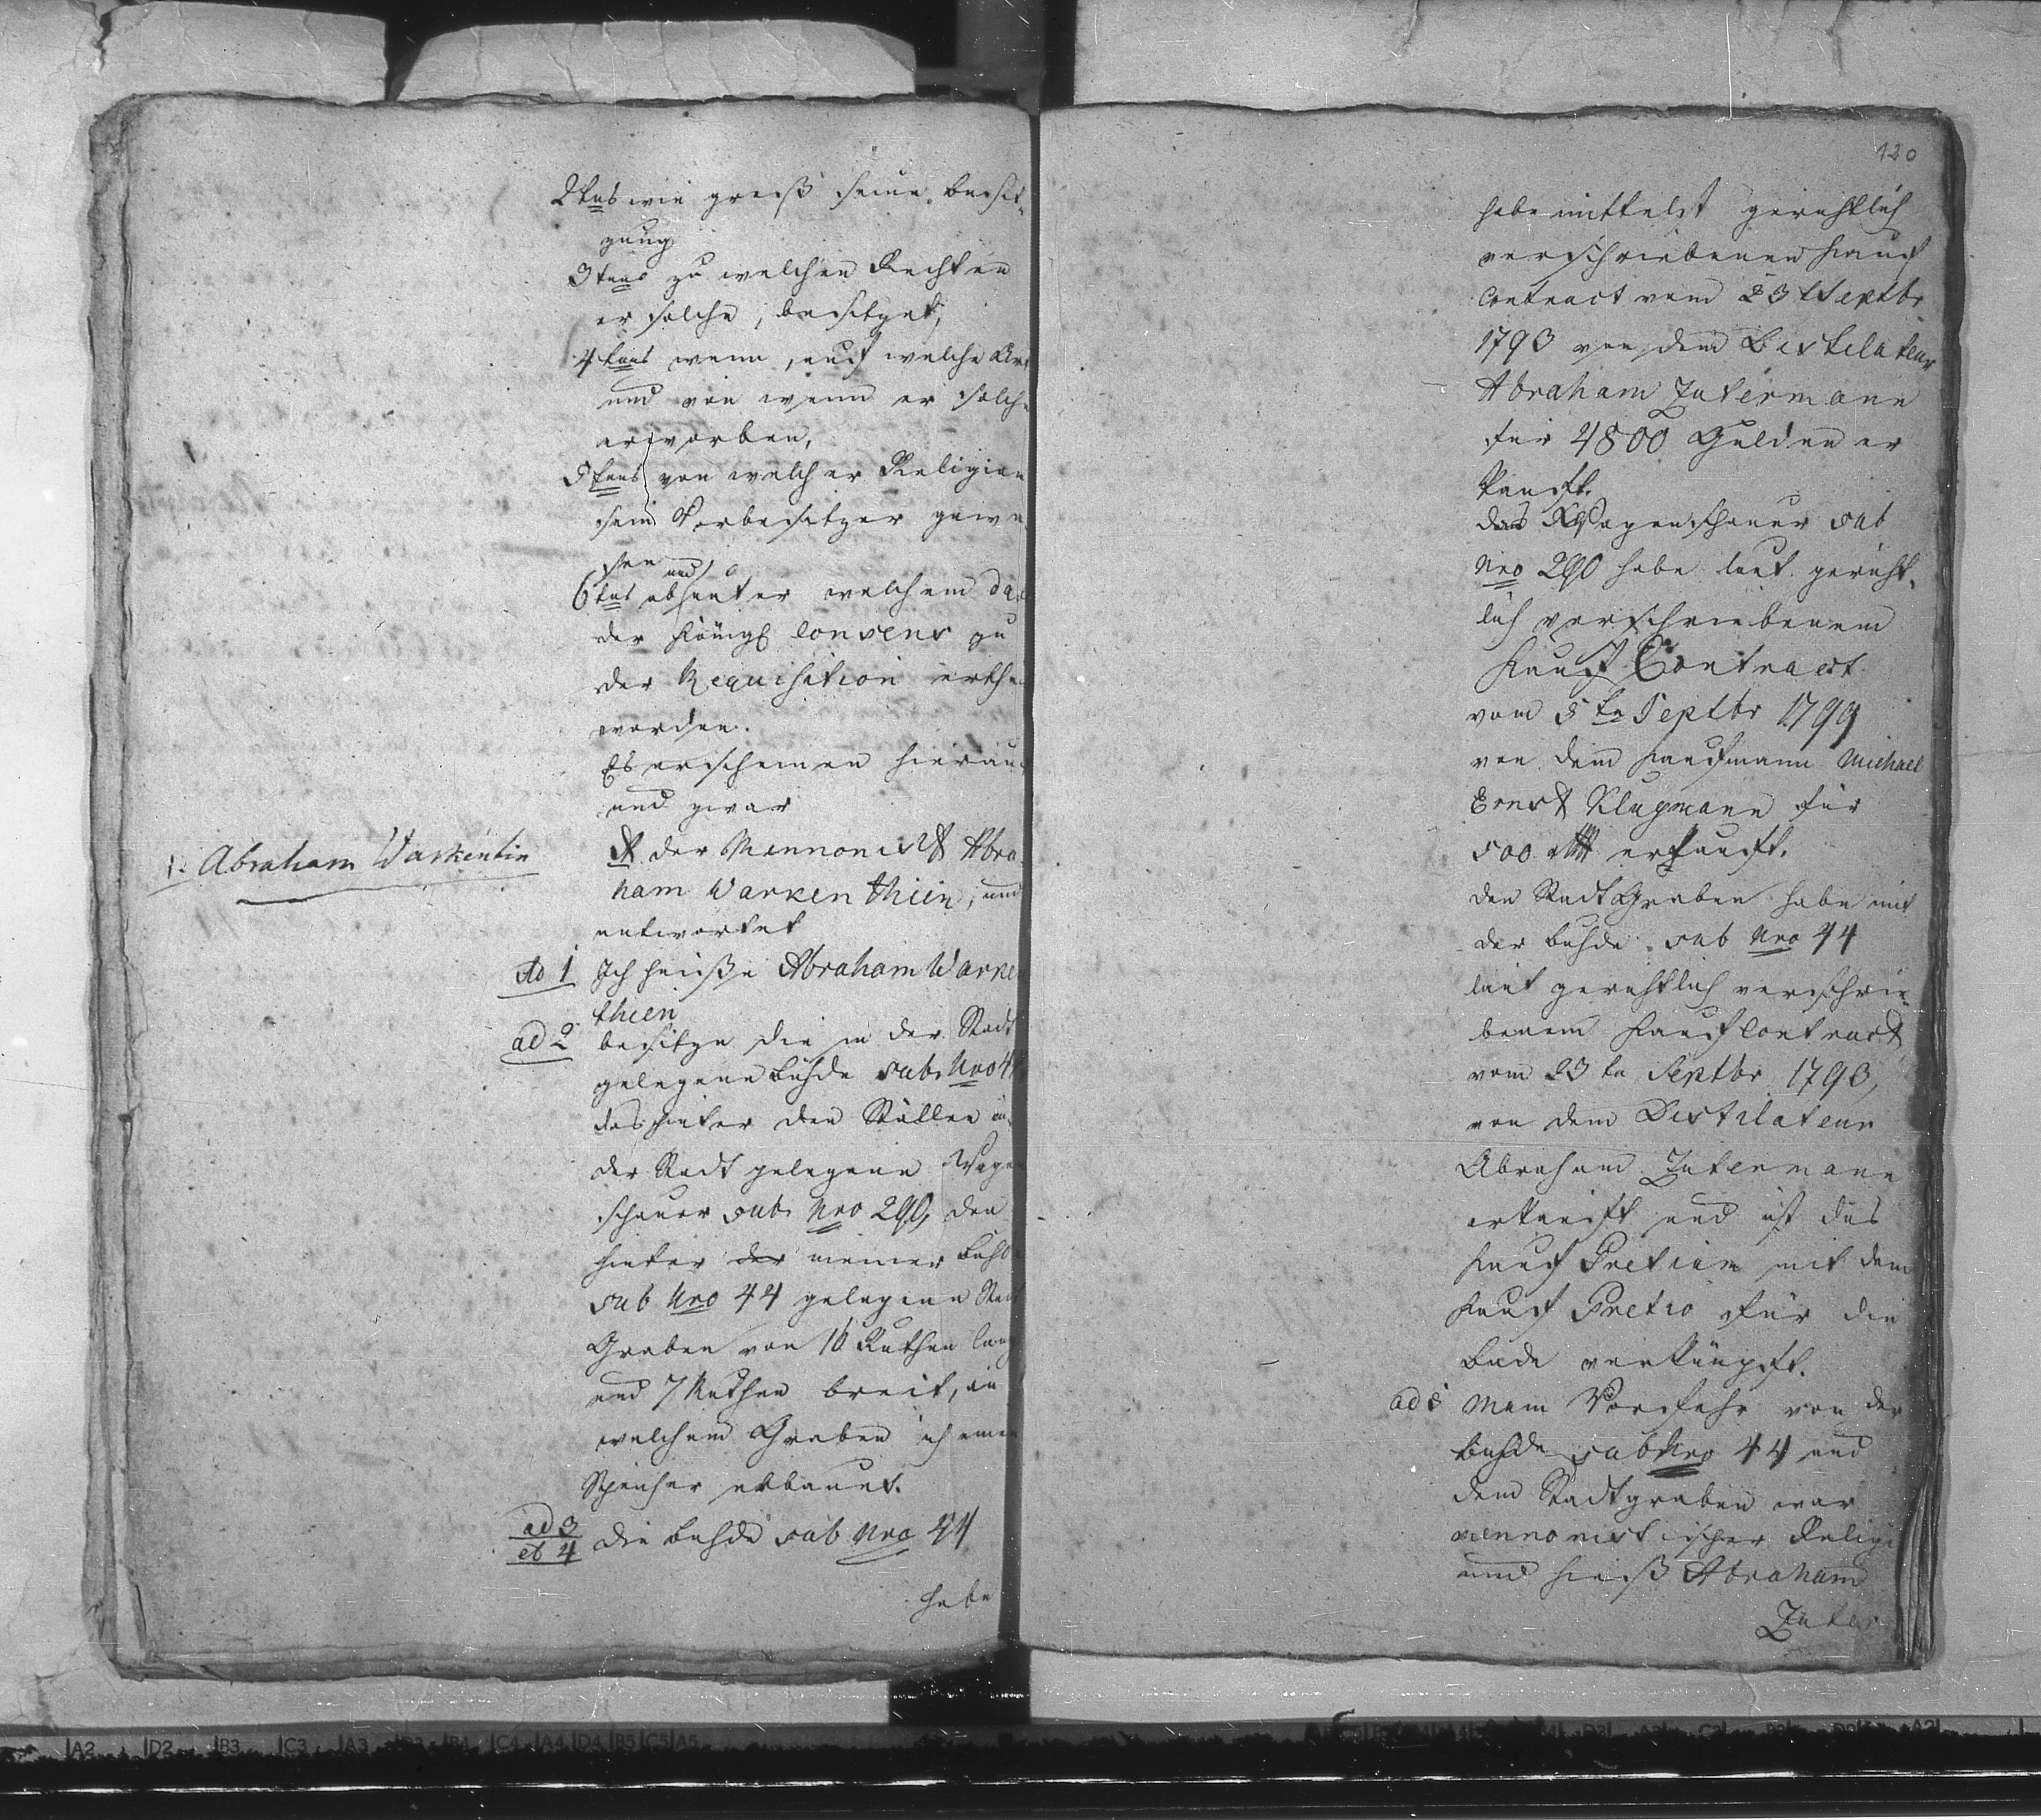 2tens wie groß seine besit-
zung
3tens zu welchen Rechten
er solche, besitzet,
4tens wenn, auf welche Art
und von wem er solche
erworben,
5tens von welcher Religion
sein Vorbesitzer gewe-
sen und
6tens ob unter welchem da
der Königl Consens zu
der Requisition erthe
worden.
Es erscheinen hierauf
und zwar
der Mennonist Abra
ham Warkenthien, und
antwortet
1. Abraham Warkentin
Ad 1 Ich heiße Abraham Warke
thien
ad 2 besitze die in der Stadt
gelegene Buhde sub Nro 44
das hinter den Ställen in
der Stadt gelegene Wagen
schauer sub Nro 290, den
hinter der meiner Buhde
sub Nro 44 gelegenen Stadt
Graben von 16 Ruthen lang
und 7 Ruthen breit, in
welchem Graben ich einen
Speicher erbauet.
ad 3 et 4 die Buhde sub Nro 44
habe
120
habe mittelst gerichtlich
verschriebenen Kauf
Contract vom 23 t Septbr
1793 von dem Distilateur
Abraham Zutermann
für 4800 Gulden er
kauft.
das Wagenschauer sub
Nro 290 habe laut gericht-
lich verschriebenem
Kauf Contract
vom 5 te Septbr 1799
von dem Kaufmann Michael
Ernst Klugmann für
500 erkauft.
den Stadt Graben habe mit
der Buhde sub Nro 44
laut gerichtlich verschrie-
benem Kauf Contract
vom 23 te Septbr 1793,
von dem Distilateur
Abraham Zutermann
erkauft und ist das
Kauf Pretium mit dem
Kauf Pretio für die
Bude verknüpft.
ad 5 Mein Vorfahr von der
Buhde sub Nro 44 und
dem Stadtgraben war
mennonistischer Religi
und hieß Abraham
Zuter